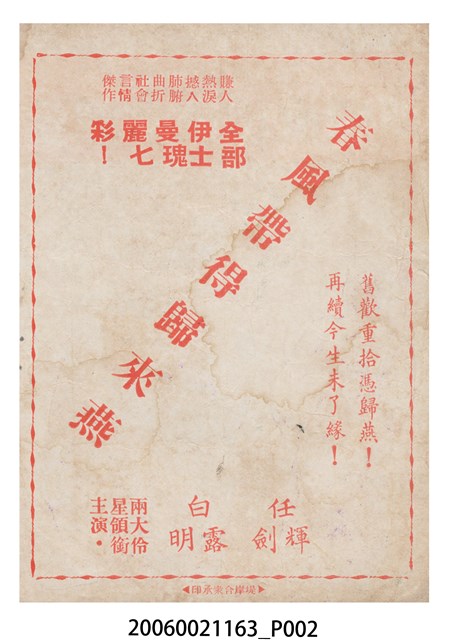 賺人熱淚撼人肺腑曲折社會言情傑作
全部伊士曼瑰麗七彩！
春風帶得歸來燕
舊歡重拾憑歸燕！
再續今生未了緣！
任劍輝
白露明
兩大伶星領銜主演。
◀堤岸合衆承印▶
20060021163_P002